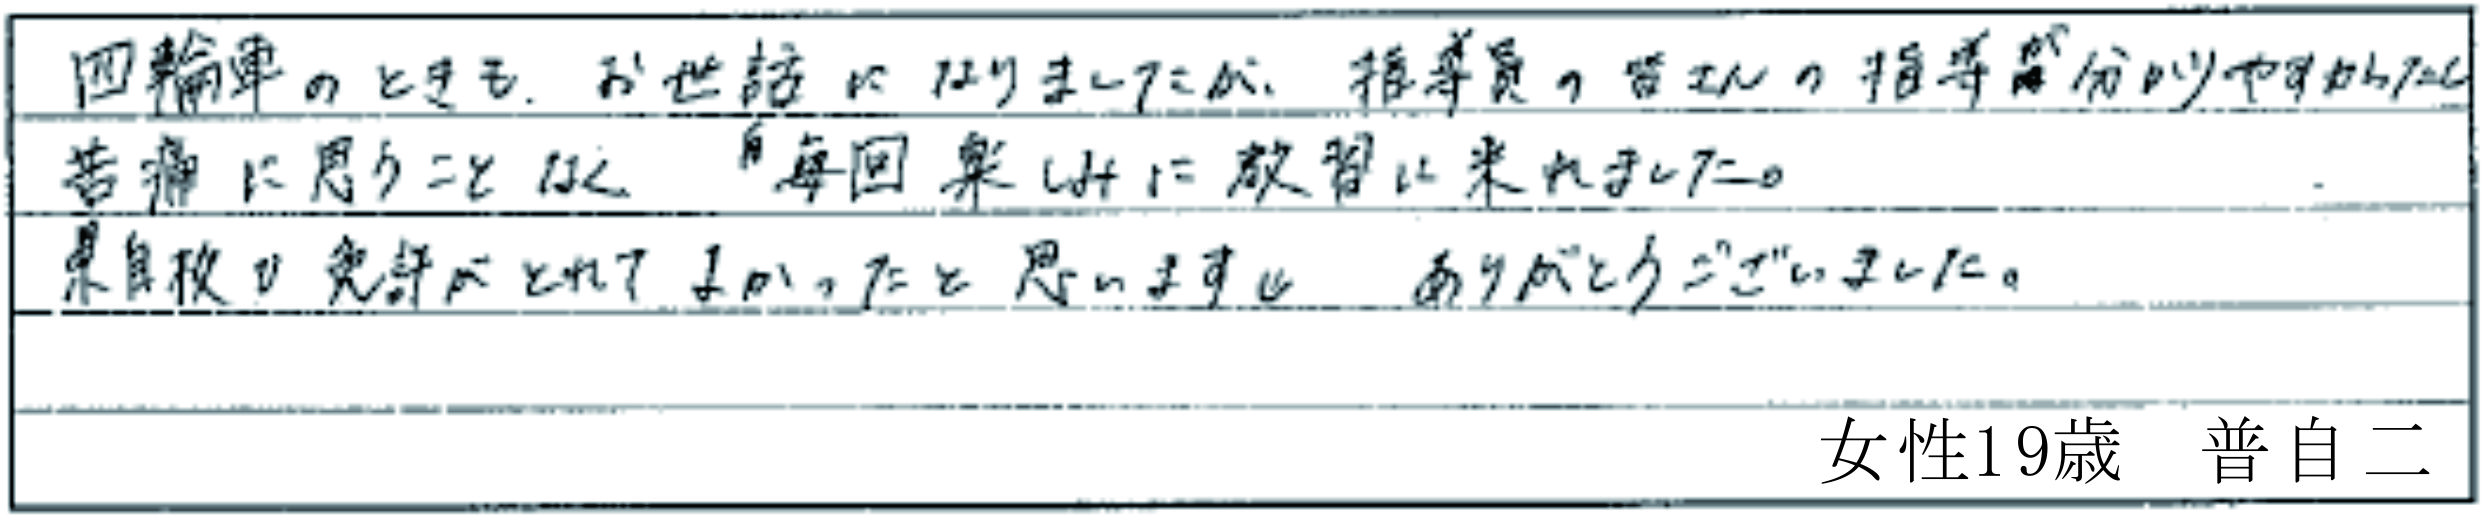 四輪車のときも、お世話になりましたが、指導員の皆さんの指導が分かりやすかったし
苦痛に思うことなく 毎回楽しみに教習に来れました。
県自校で免許がとれてよかったと思います ありがとうございました。
女性19歳 普自二